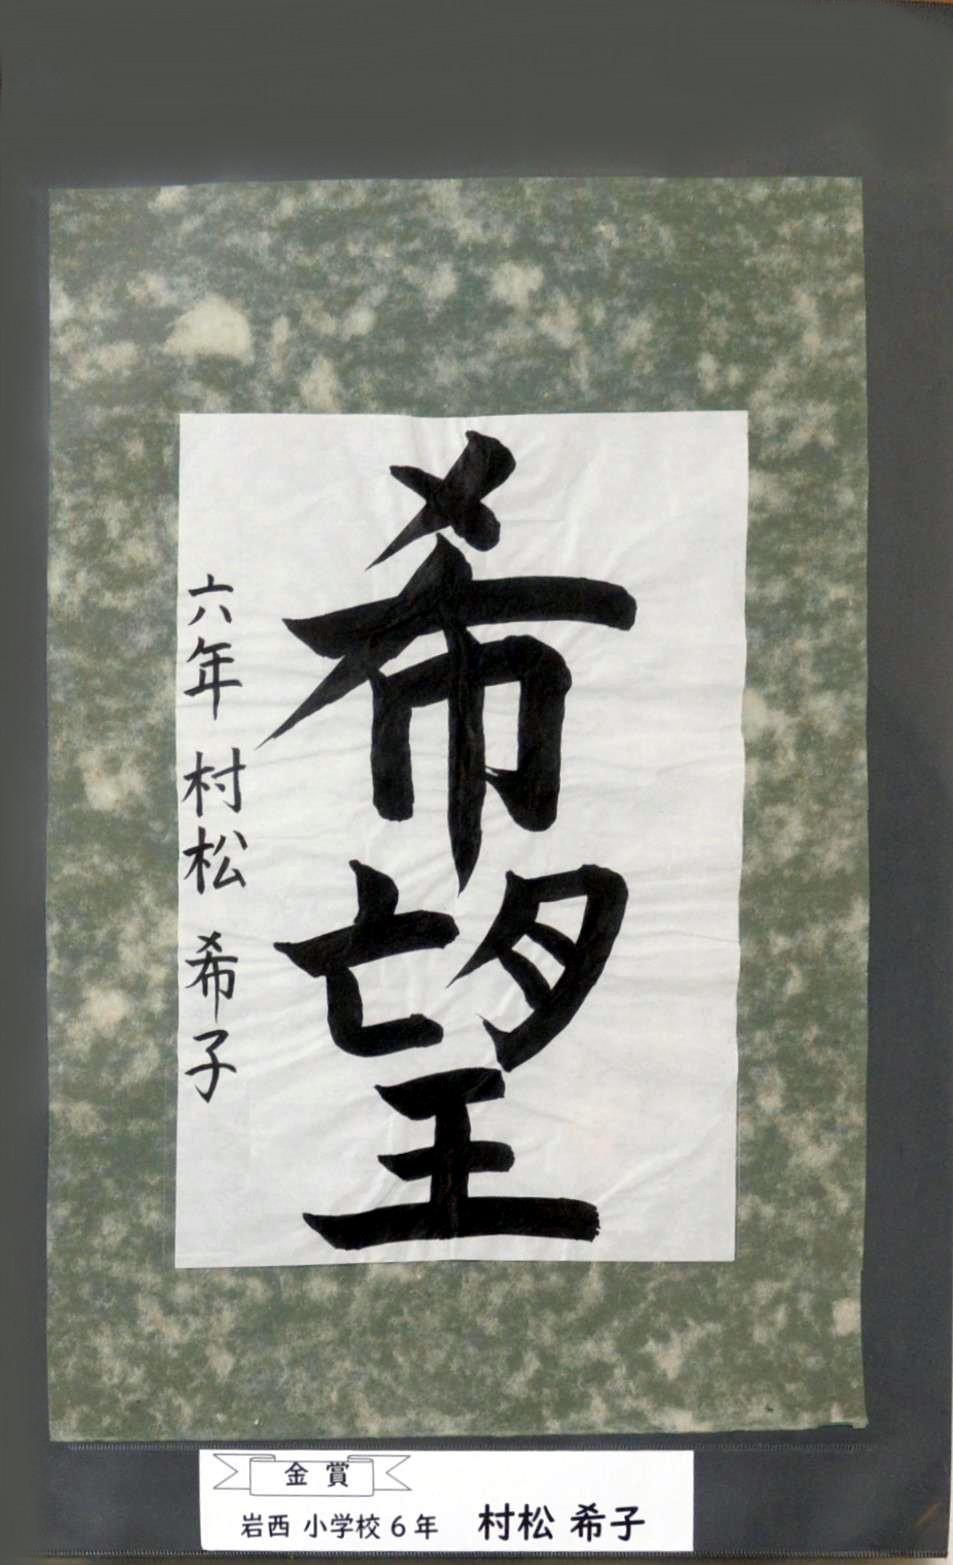 希望
六年 村松 希子
金賞
岩西 小学校 6年 村松 希子